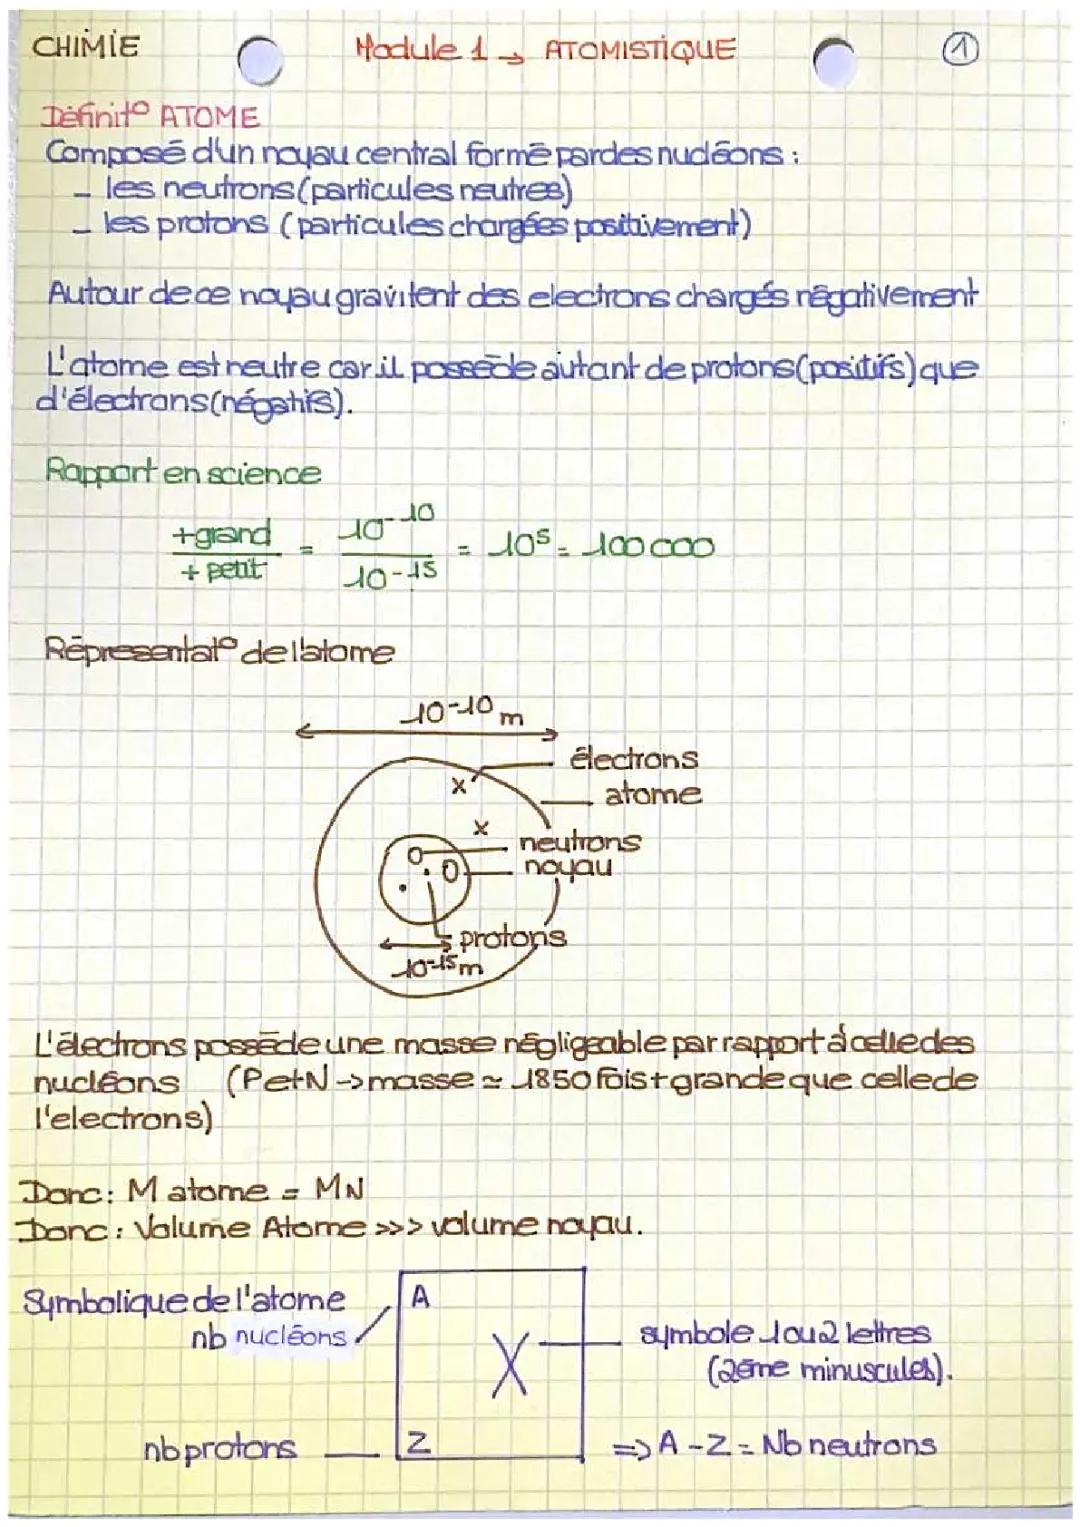 CHIMIE Module 1 → ATOMISTIQUE 1
Définit° ATOME
Composé d'un noyau central formé par des nucléons :
- les neutrons (particules neutres)
- les protons (particules chargées positivement)
Autour de ce noyau gravitent des electrons chargés négativement
L'atome est neutre car il possède autant de protons (positifs) que
d'électrons (négatifs).
Rapport en science
+grand / + petit = 10^-10 / 10^-15 = 10^5 = 100 000
Réprésentat° de l'atome
10^-10 m
électrons
atome
neutrons
noyau
protons
10^-15 m
L'électrons possède une masse négligeable par rapport à celle des
nucléons (P et N → masse ≈ 1850 fois + grande que celle de
l'electrons)
Donc : M atome = MN
Donc : Volume Atome >>> volume noyau.
Symbolique de l'atome A
nb nucléons X symbole 1 ou 2 lettres
(2ème minuscules).
nb protons Z => A - Z = Nb neutrons